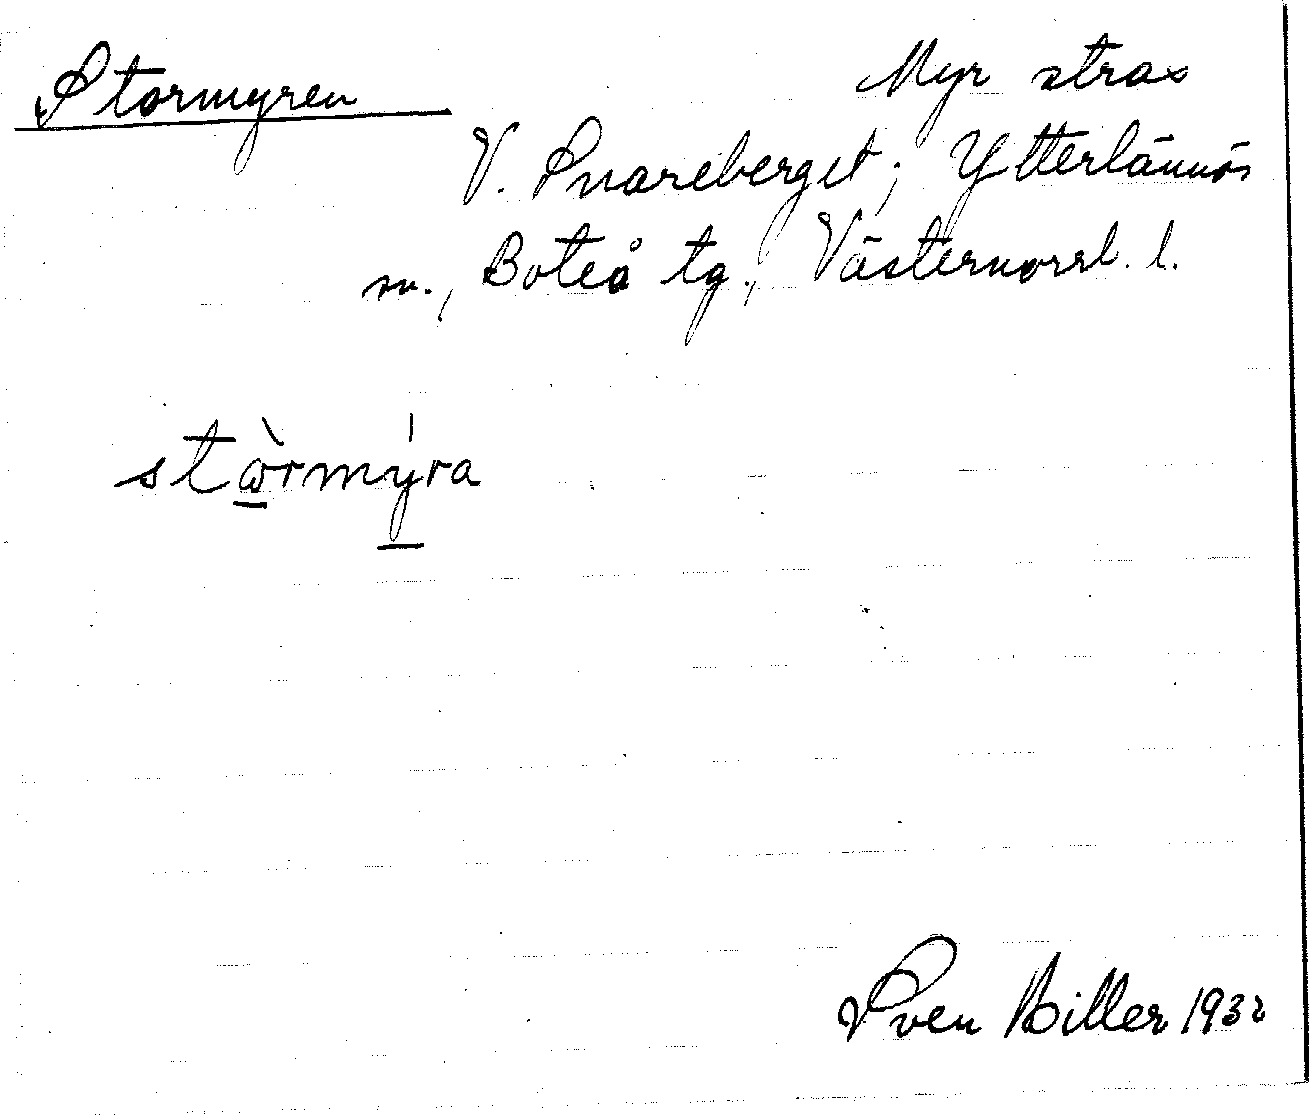 Stormyren
Myr strax
V. Snareberget; Ytterlännäs
sn., Boteå tg., Västernorrl. l.
stὼ̲rmý̲ra
Sven Biller 1932